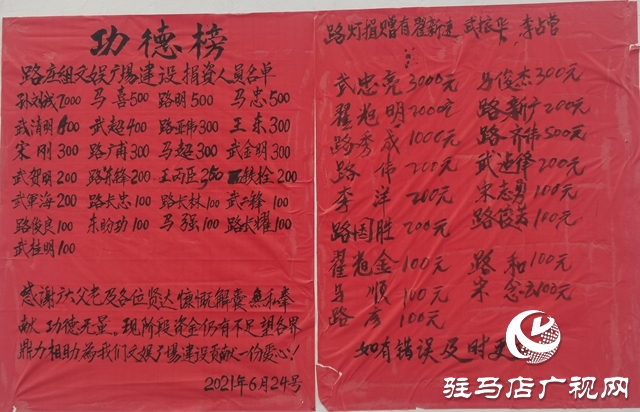 功德榜
路庄组文娱广场建设捐资人员名单
孙刘城7000 马喜500 路明500 马忠500
武清明500 武超400 路亚伟300 王东300
宋刚300 路广甫300 马超300 武金明300
武贺明200 路东锋200 王丙臣350 铁拴200
武军海200 路长忠100 路长林100 武二锋100
路俊良100 东盼功100 马强100 路长耀100
武桂明100
感谢广大父老及各位贤达慷慨解囊无私奉
献功德无量。现阶段资金仍有不足望各界
鼎力相助为我们文娱广场建设贡献一份爱心!
2021年6月24号
路灯捐赠有翟新连 武振华 李占营
武忠亮3000元 马俊杰300元
翟旭明2000元 路新广200元
路秀成1000元 路齐伟500元
路伟200元 武进锋200元
李洋200元 宋志勇100元
路国胜200元 路良100元
翟金100元 路和100元
马顺100元 宋念云100元
路彦100元
如有错误及时更
驻马店广视网